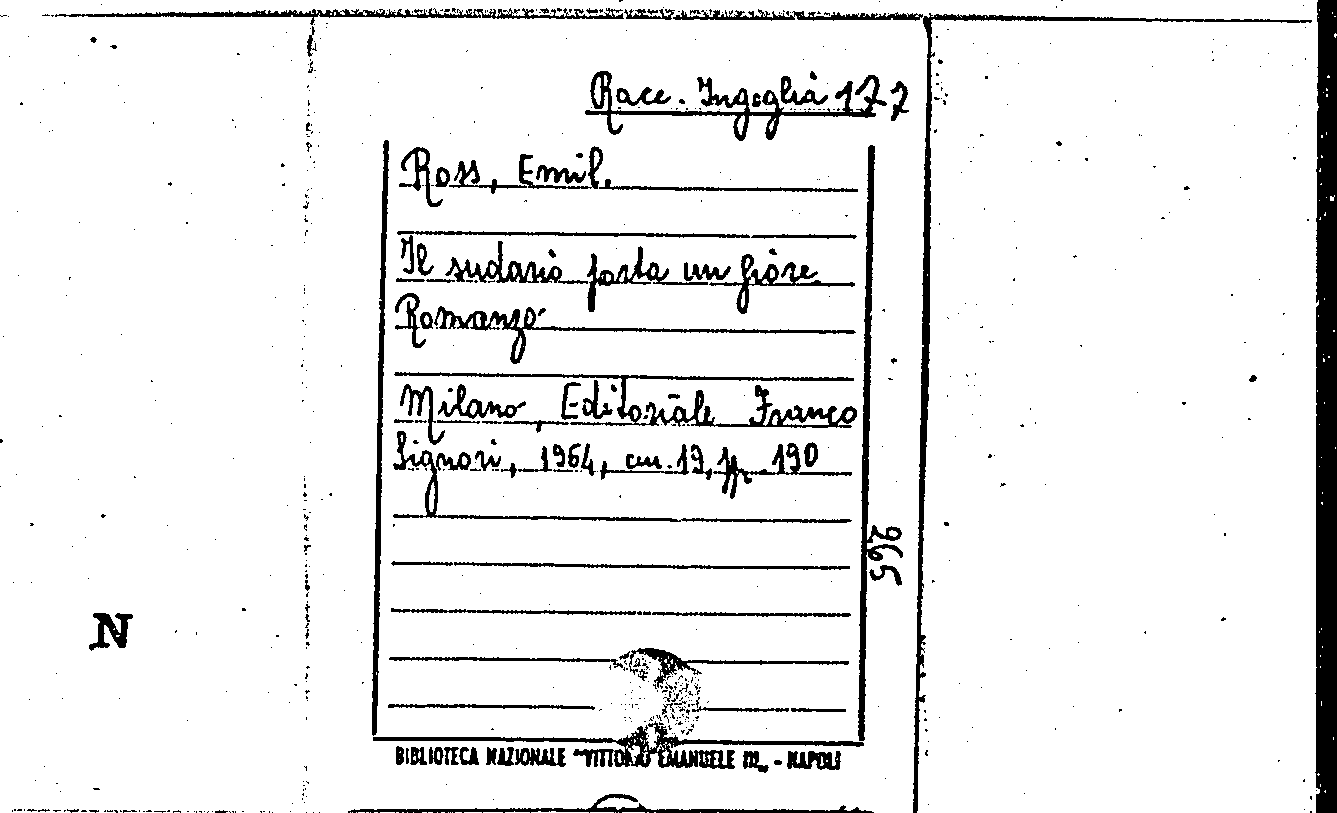 Racc. Ingoglia 177
Ross, Emil.
Il sudario porta un fiore
Romanzo
Milano, Editoriale Franco
Signori, 1964, cm. 19, pp. 190
265
N
BIBLIOTECA NAZIONALE "VITTORIO EMANUELE III„ - NAPOLI